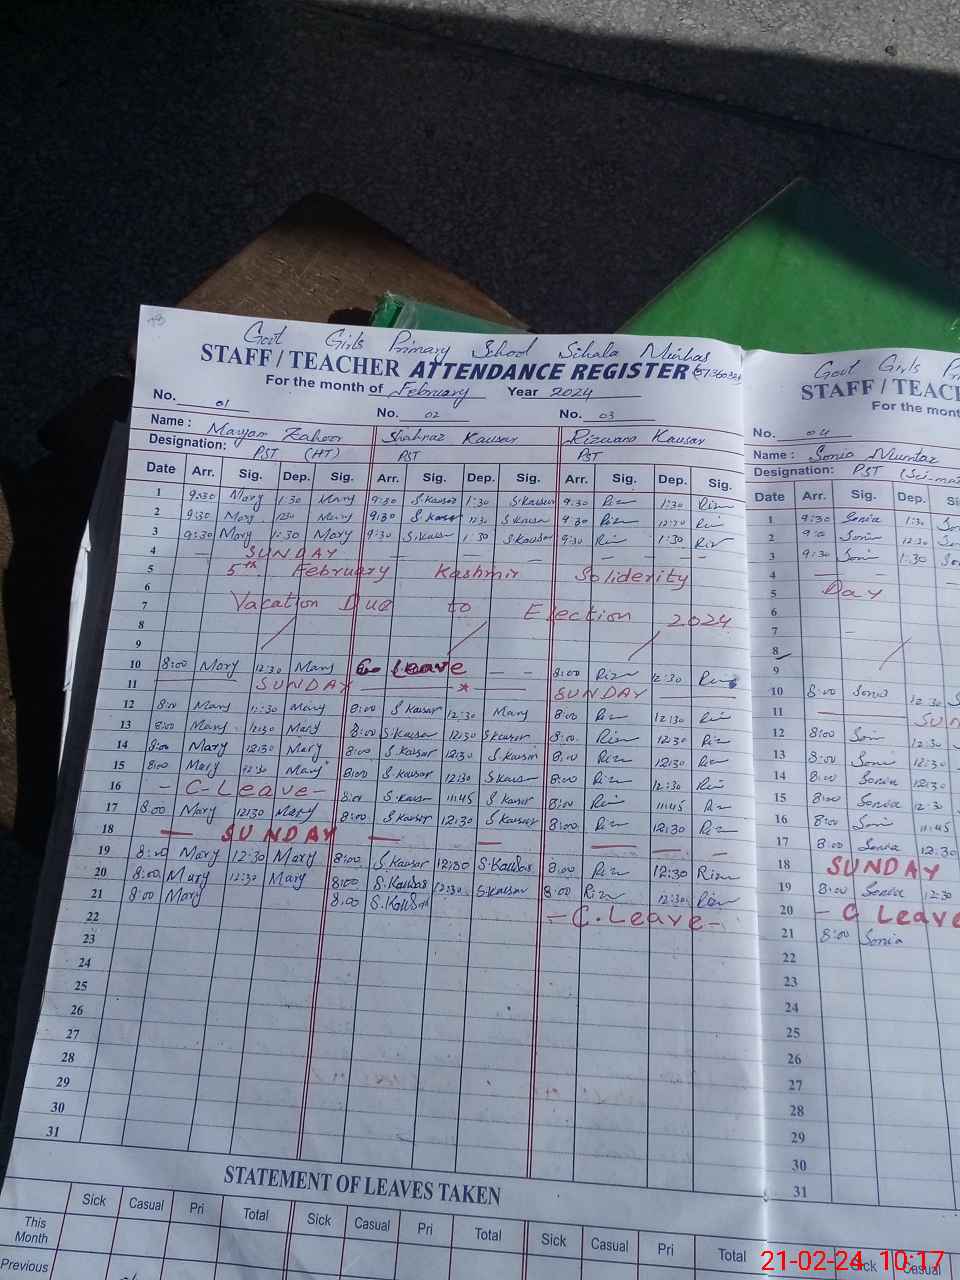 Govt Girls Primary School Sihala Minhas
STAFF / TEACHER ATTENDANCE REGISTER
For the month of February Year 2024
No. 01 No. 02 No. 03
Name : Maryam Zahoor Shahnaz Kausar Rizwana Kausar
Designation: PST (HT) PST PST
Date Arr. Sig. Dep. Sig. Arr. Sig. Dep. Sig. Arr. Sig. Dep. Sig.
1 9:30 Mary 1:30 Mary 9:30 S.Kausar 1:30 S.Kausar 9:30 Riz 1:30 Riz
2 9:30 Mary 1230 Mary 9:30 S.Kausar 12:30 S.Kausar 9:30 Riz 12:30 Riz
3 9:30 Mary 1:30 Mary 9:30 S.Kausar 1:30 S.Kausar 9:30 Riz 1:30 Riz
4 — SUNDAY — — — — — — —
5 5th February Kashmir Soliderity
6
7 Vacation Due to Election 2024
8
9
10 8:00 Mary 12:30 Mary C- Leave — — 8:00 Riz 12:30 Riz
11 SUNDAY SUNDAY
12 8:00 Mary 12:30 Mary 8:00 S.Kausar 12:30 Mary 8:00 Riz 12:30 Riz
13 8:00 Mary 12:30 Mary 8:00 S.Kausar 12:30 S.Kausar 8:00 Riz 12:30 Riz
14 8:00 Mary 12:30 Mary 8:00 S.Kausar 12:30 S.Kausar 8:00 Riz 12:30 Riz
15 8:00 Mary 12:30 Mary 8:00 S.Kausar 12:30 S.Kausar 8:00 Riz 12:30 Riz
16 - C-Leave - 8:00 S.Kausar 11:45 S.Kausar 8:00 Riz 11:45 Riz
17 8:00 Mary 12:30 Mary 8:00 S.Kausar 12:30 S.Kausar 8:00 Riz 12:30 Riz
18 — SUNDAY — — — — —
19 8:00 Mary 12:30 Mary 8:00 S.Kausar 12:30 S.Kausar 8:00 Riz 12:30 Riz
20 8:00 Mary 12:30 Mary 8:00 S.Kausar 12:30 S.Kausar 8:00 Riz 12:30 Riz
21 8:00 Mary 8:00 S.Kausar - C.Leave -
22
23
24
25
26
27
28
29
30
31
STATEMENT OF LEAVES TAKEN
Sick Casual Pri Total Sick Casual Pri Total Sick Casual Pri Total
This Month
Previous
Govt Girls
STAFF / TEAC
For the mont
No. 04
Name : Sonia Mumtaz
Designation: PST (Sci-ma
Date Arr. Sig. Dep. S
1 9:30 Sonia 1:30
2 Sonia 12:30
3 9:30 Soni 1:30
4
5 Day
6
7
8
9
10 8:00 Sonia 12:30
11 SUN
12 8:00 Soni 12:30
13 8:00 Soni 12:30
14 8:00 Sonia 12:30
15 8:00 Sonia 12:30
16 8:00 Soni 11:45
17 8:00 Sonia 12:30
18 SUNDAY
19 8:00 Sonia 12:30
20 - C Leave
21 8:00 Sonia
22
23
24
25
26
27
28
29
30
31
Sick Casual
21-02-24 10:17